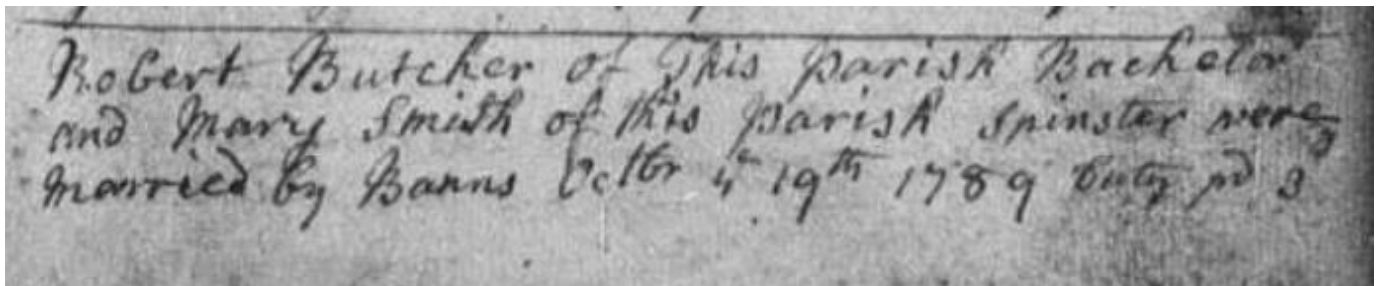 Robert Butcher of This Parish Bachelor
and Mary Smith of this Parish Spinster were
Married by Banns Octbr ye 19th 1789 Duty pd 3d